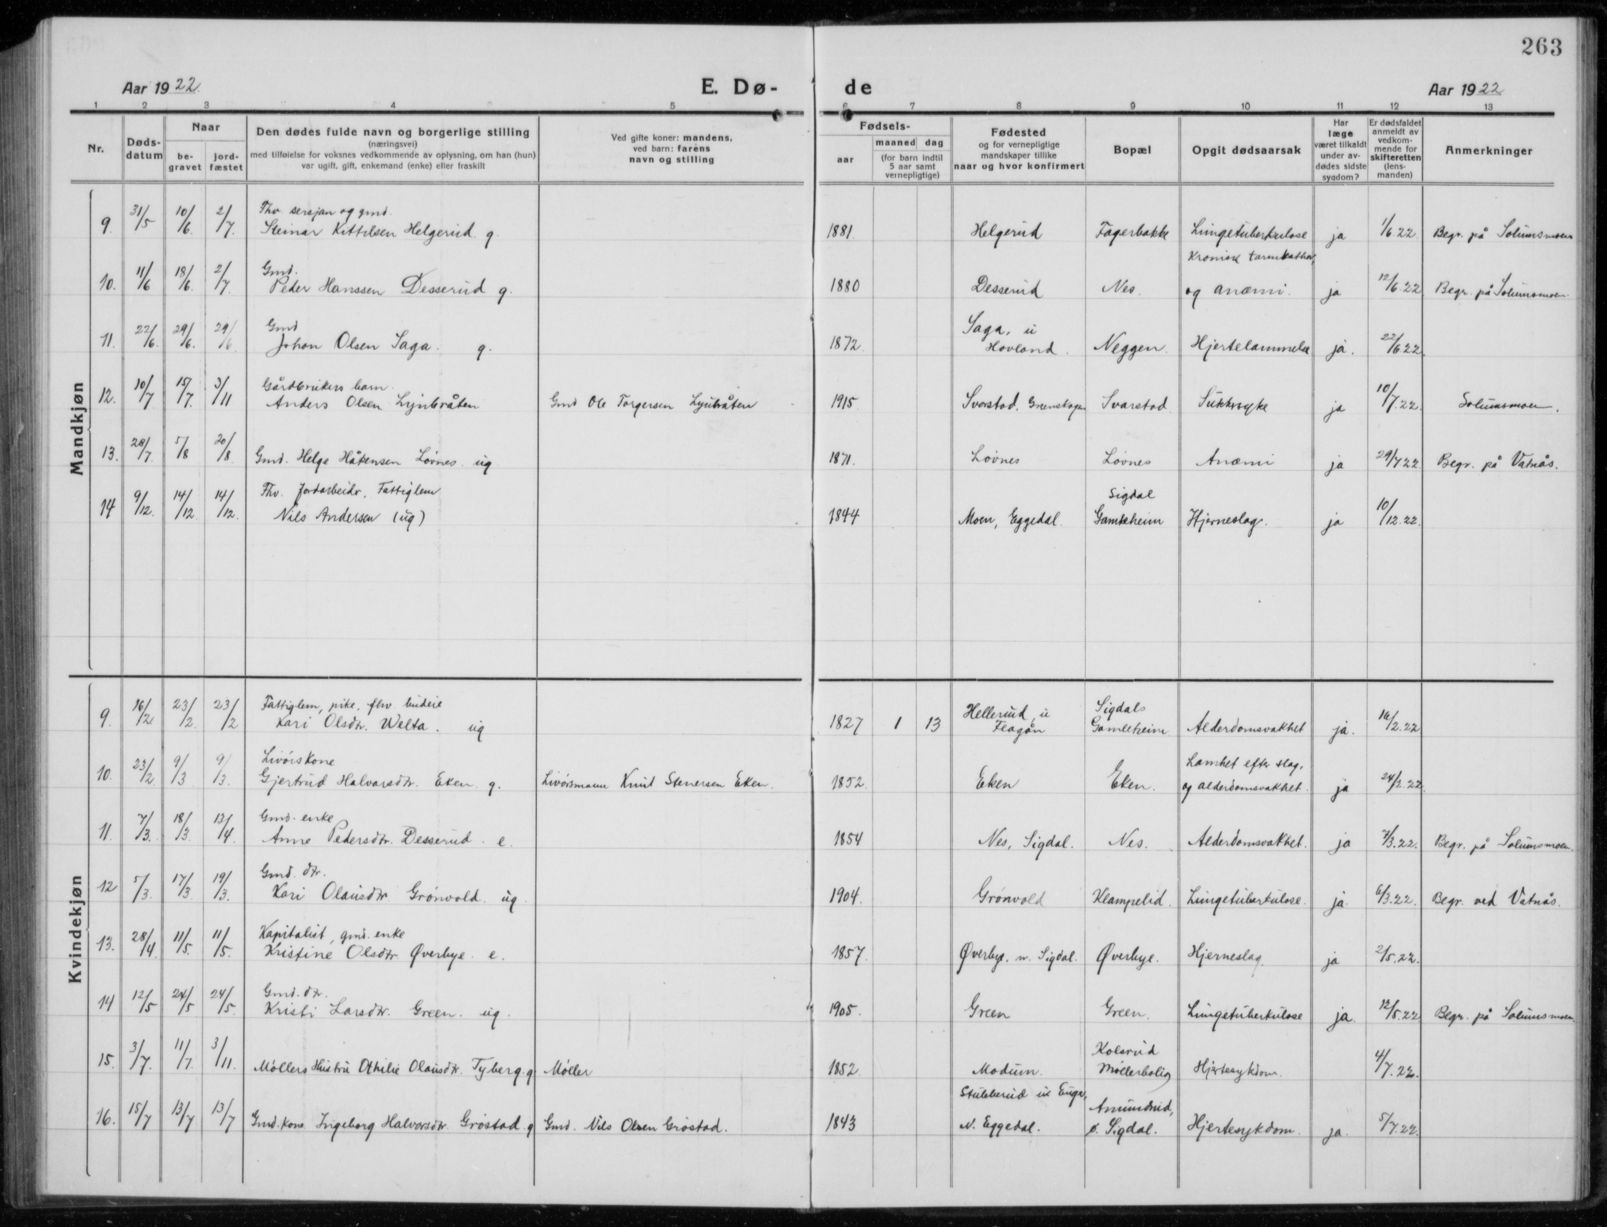 263
Aar 1922. E. Dø- de Aar 1922
1 2 3 4 5 6 7 8 9 10 11 12 13
Nr. Døds-datum Naar be-gravet jord-fæstet Den dødes fulde navn og borgerlige stilling (næringsvei) med tilføielse for voksnes vedkommende av oplysning, om han (hun) var ugift, gift, enkemand (enke) eller fraskilt Ved gifte koner: mandens, ved barn: farens navn og stilling Fødsels- aar maaned dag (for barn indtil 5 aar samt vernepligtige) Fødested og for vernepligtige mandskaper tillike naar og hvor konfirmert Bopæl Opgit dødsaarsak Har læge været tilkaldt under av-dødes sidste sygdom? Er dødsfaldet anmeldt av vedkom-mende for skifteretten (lens-manden) Anmerkninger
Mandkjøn
Fhv. sersjan og gmd.
9. 31/5 10/6 2/7 Steinar Kittilsen Helgerud g. 1881 Helgerud Fagerbakke Lungetuberkulose ja 1/6 22 Begr. på Solumsmoen
Gmd. Kronisk tarmkathar,
10. 11/6 18/6 2/7 Peder Hanssen Desserud g. 1880 Desserud Nes. og anæmi. ja 12/6.22 Begr. på Solumsmoen
Gmd Saga, u
11. 22/6 29/6 29/6 Johan Olsen Saga. g. 1872 Hovland. Neggen Hjertelammelse ja. 22/6 22
Gårdbrukers barn.
12. 10/7 15/7 3/11 Anders Olsen Lynbråten Gmd Ole Torgersen Lynbråten 1915 Svarstad, Svarstad Sukkersyke ja 10/7.22. Solumsmoen.
13. 28/7 5/8 20/8 Gmd. Helge Håkensen Løvnes. ug 1871. Løvnes Løvnes Anæmi ja 29/7 22 Begr. på Vatnås.
Fhv. Jordarbeider, Fattiglem Sigdal
14 9/12. 14/12 14/12. Nils Andersen (ug) 1844 Moen, Eggedal. Gamleheim Hjerneslag. ja 10/12.22.
Kvindekjøn
Fattiglem, pike, fhv. budeie Hellerud, u Sigdals
9. 16/2 23/2. 23/2 Kari Olsdtr. Welta. ug 1827 1 13 Flagån Gamleheim Alderdomsvakhet ja. 16/2.22
Livørskone Lamhet efter slag,
10. 23/2 9/3 9/3. Gjertrud Halvorsdtr. Eken g. Livørsmann Knut Stenersen Eken. 1852. Eken Eken. og alderdomsvakhet. ja 24/2.22.
Gmd. enke
11. 7/3. 18/3. 13/4 Anne Pedersdtr. Desserud. e. 1854 Nes, Sigdal. Nes. Alderdomsvakhet. ja 7/3.22. Begr. på Solumsmoen.
Gmd. dtr.
12 5/3. 17/3 19/3. Kari Olausdtr Grønvold. ug 1904. Grønvold Klampelid. Lungetuberkulose. ja. 6/3.22. Begr. ved Vatnås.
Kapitalist, gmd. enke
13. 28/4. 11/5. 11/5. Kristine Olsdtr Øverbye. e. 1857. Øverbye. n. Sigdal. Øverbye. Hjerneslag. ja 2/5.22.
Gmd. dtr.
14 12/5 24/5 24/5. Kristi Larsdtr. Green. ug. 1905. Green Green. Lungetuberkulose ja. 12/5.22 Begr. på Solumsmoen.
Kolsrud
15. 3/7. 11/7. 3/11. Møllers Hustru Othilie Olausdtr. Tyberg. g Møller 1852. Modum. Møllerbolig Hjertesykdom. 4/7.22.
Stubberud u Enger, Amundrud,
16. 15/7 13/7 13/7 Gmd. kone Ingeborg Halvorsdtr. Grøstad. g Gmd. Nils Olsen Grøstad. 1843 N. Eggedal. ø. Sigdal. Hjertesykdom. ja. 5/7.22.